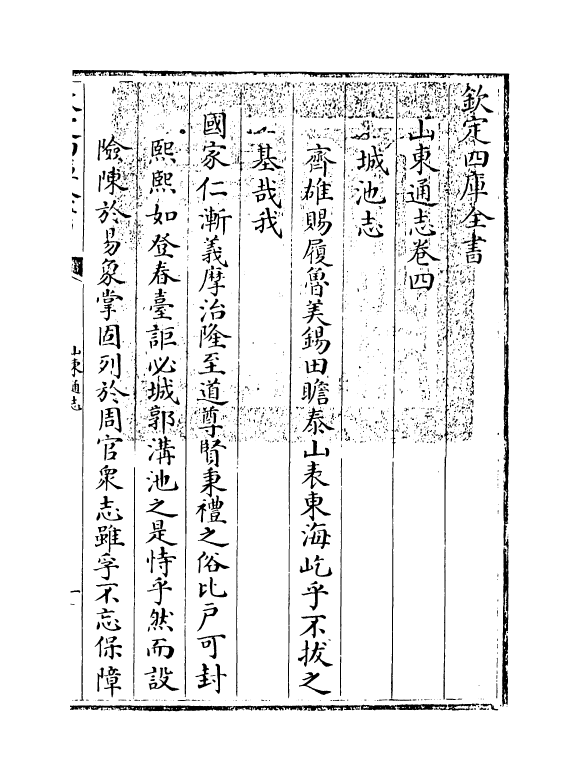 欽定四庫全書
山東通志卷四
城池志
齊雄賜履魯美錫田瞻泰山表東海屹乎不拔之
基哉我
國家仁漸義摩治隆至道尊賢秉禮之俗比戶可封
熙熙如登春臺詎必城郭溝池之是恃乎然而設
險陳於易象掌固列於周官衆志雖孚不忘保障
山東通志
一